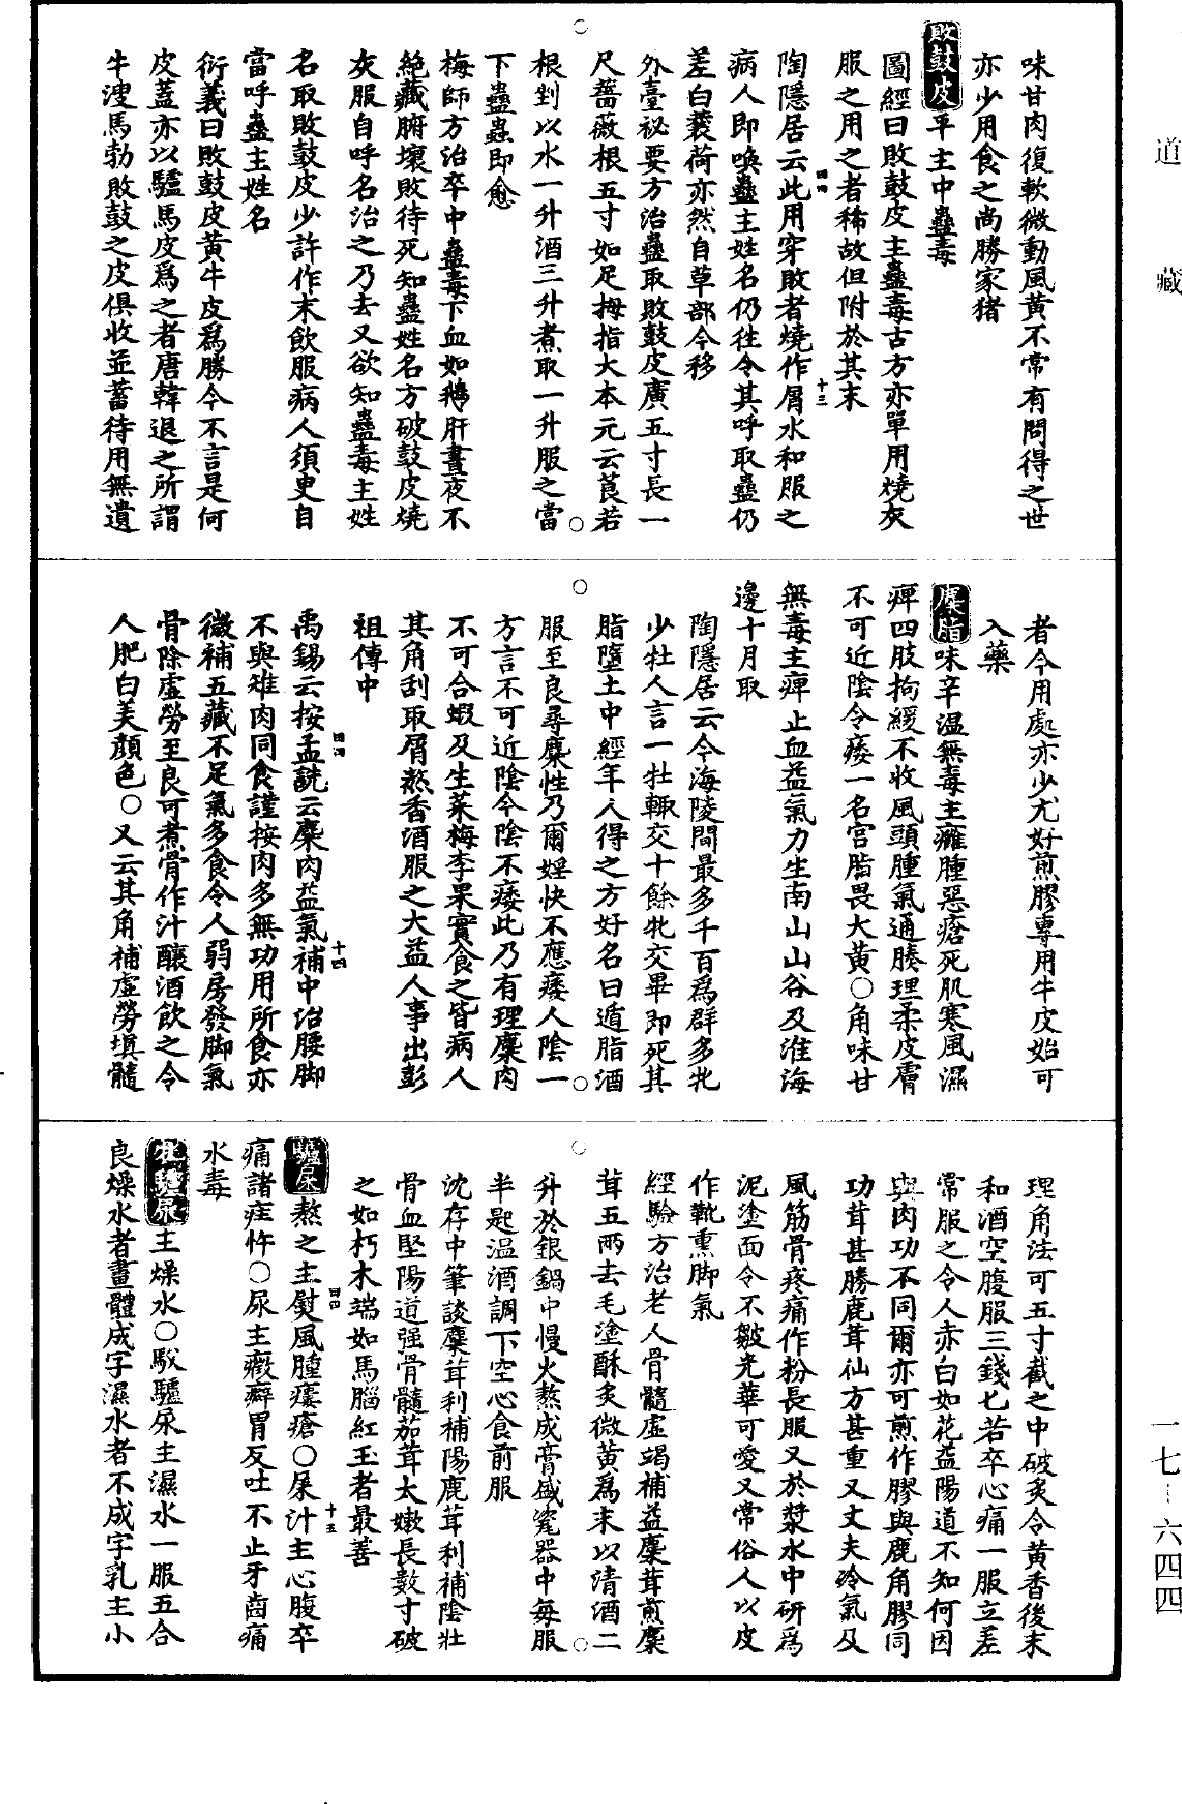 道藏
味甘肉復軟微動風黃不常有問得之世
亦少用食之尚勝家猪
敗鼓皮平主中蠱毒
圖經曰敗鼓皮主蠱毒古方亦單用燒灰
服之用之者稀故但附於其末
四四
十三
陶隱居云此用穿敗者燒作屑水和服之
病人即喚蠱主姓名仍往令其呼取蠱仍
差白蘘荷亦然自草部今移
外臺祕要方治蠱取敗鼓皮廣五寸長一
尺薔薇根五寸如足拇指大本元云莨若
根剉以水一升酒三升煮取一升服之當
下蠱蟲即愈
梅師方治卒中蠱毒下血如鵝肝晝夜不
絕藏腑壞敗待死知蠱姓名方破鼓皮燒
灰服自呼名治之乃去又欲知蠱毒主姓
名取敗鼓皮少許作末飲服病人須臾自
當呼蠱主姓名
衍義曰敗鼓皮黃牛皮爲勝今不言是何
皮蓋亦以驢馬皮爲之者唐韓退之所謂
牛溲馬勃敗鼓之皮俱收並蓄待用無遺
者今用處亦少尤好煎膠專用牛皮始可
入藥
麋脂味辛溫無毒主癰腫惡瘡死肌寒風濕
痺四肢拘緩不收風頭腫氣通腠理柔皮膚
不可近陰令痿一名宮脂畏大黃○角味甘
無毒主痺止血益氣力生南山山谷及淮海
邊十月取
陶隱居云今海陵間最多千百爲群多牝
少牡人言一牡輒交十餘牝交畢即死其
脂墮土中經年人得之方好名曰遁脂酒
服至良尋麋性乃爾婬快不應痿人陰一
方言不可近陰令陰不痿此乃有理麋肉
不可合蝦及生菜梅李果實食之皆病人
其角刮取屑熬香酒服之大益人事出彭
祖傳中
四四
十四
禹錫云按孟詵云麋肉益氣補中治腰脚
不與雉肉同食謹按肉多無功用所食亦
微補五藏不足氣多食令人弱房發脚氣
骨除虛勞至良可煮骨作汁釀酒飲之令
人肥白美顔色○又云其角補虛勞塡髓
理角法可五寸截之中破炙令黃香後末
和酒空腹服三錢匕若卒心痛一服立差
常服之令人赤白如花益陽道不知何因
與肉功不同爾亦可煎作膠與鹿角膠同
功茸甚勝鹿茸仙方甚重又丈夫冷氣及
風筋骨疼痛作粉長服又於漿水中研爲
泥塗面令不皺光華可愛又常俗人以皮
作靴熏脚氣
經驗方治老人骨髓虛竭補益麋茸煎麋
茸五兩去毛塗酥炙微黃爲末以清酒二
升於銀鍋中慢火熬成膏盛瓷器中每服
半匙溫酒調下空心食前服
沈存中筆談麋茸利補陽鹿茸利補陰壯
骨血堅陽道强骨髓茄茸太嫩長數寸破
之如朽木端如馬腦紅玉者最善
四四
十五
驢屎熬之主熨風腫瘻瘡○屎汁主心腹卒
痛諸疰忤○尿主癥癖胃反吐不止牙齒痛
水毒
主燥水○駁驢尿主濕水一服五合
良燥水者畫體成字濕水者不成字乳主小
一七-六四四